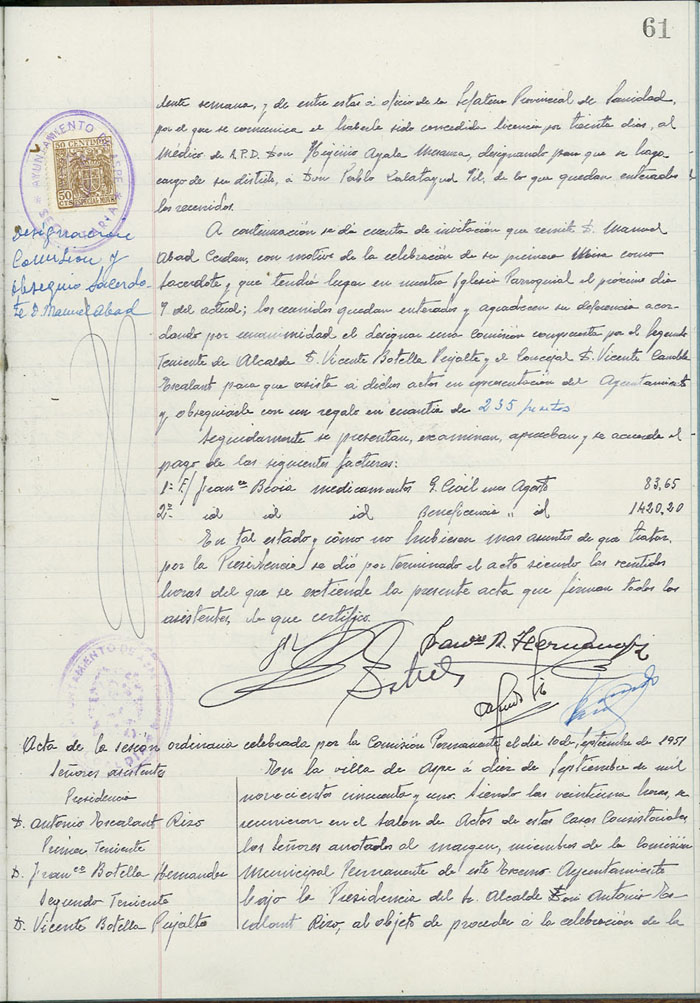 61
dente semana, y de entre estas á oficio de la Jefatura Provincial de Sanidad,
por el que se comunica el haberle sido concedida licencia por treinta días, al
Médico de A.P.D. Don Higinio Ayala, designando para que se haga
cargo de su distrito, á Don Pablo Calatayud Gil. de lo que quedan enterados
los reunidos.
AYUNTAMIENTO DE ASPE
SECRETARIA
50 CENTIMOS
50 CTS
Designacion
Comision y
obsequio Sacerdo-
te D. Manuel Abad
A continuación se dia cuenta de invitación que remite D. Manuel
Abad, con motivo de la celebración de su primera Misa como
Sacerdote, y que tendrá lugar en nuestra Iglesia Parroquial el próximo dia
9 del actual; los reunidos quedan enterados y agradecen su deferencia acor-
dando por unanimidad el designar una Comisión compuesta por el Segundo
Teniente de Alcalde D. Vicente Botella Pujalte y el Concejal D. Vicente
Escalant para que asista á dichos actos en representación del Ayuntamiento
y obsequiarle con un regalo en cuantía de 235 pesetas
Seguidamente se presentan, examinan, aprueban y se acuerda el
pago de las siguientes facturas:
1ª F/ Franco Bevia medicamentos G. Civil mes Agosto 83,65
2ª id id id Beneficencia " id 1420,20
En tal estado y cómo no hubiesen mas asuntos de que tratar,
por la Presidencia se dió por terminado el acto siendo las
horas del que se extiende la presente acta que firman todos los
asistentes, de que certifico.
AYUNTAMIENTO DE ASPE
Acta de la sesión ordinaria celebrada por la Comisión Permanente el dia 10 de Septiembre de 1951
Señores asistentes
Presidencia
D. Antonio Escalant Rizo
Primer Teniente
D. Franco Botella Hernandez
Segundo Teniente
D. Vicente Botella Pujalte
En la villa de Aspe á diez de Septiembre de mil
novecientos cincuenta y uno. Siendo las veintiuna horas, se
reunieron en el Salon de Actos de estas Casas Consistoriales
los Señores anotados al margen, miembros de la Comisión
Municipal Permanente de este Ayuntamiento
bajo la Presidencia del Sr. Alcalde Don Antonio Es-
calant Rizo, al objeto de proceder á la celebración de la